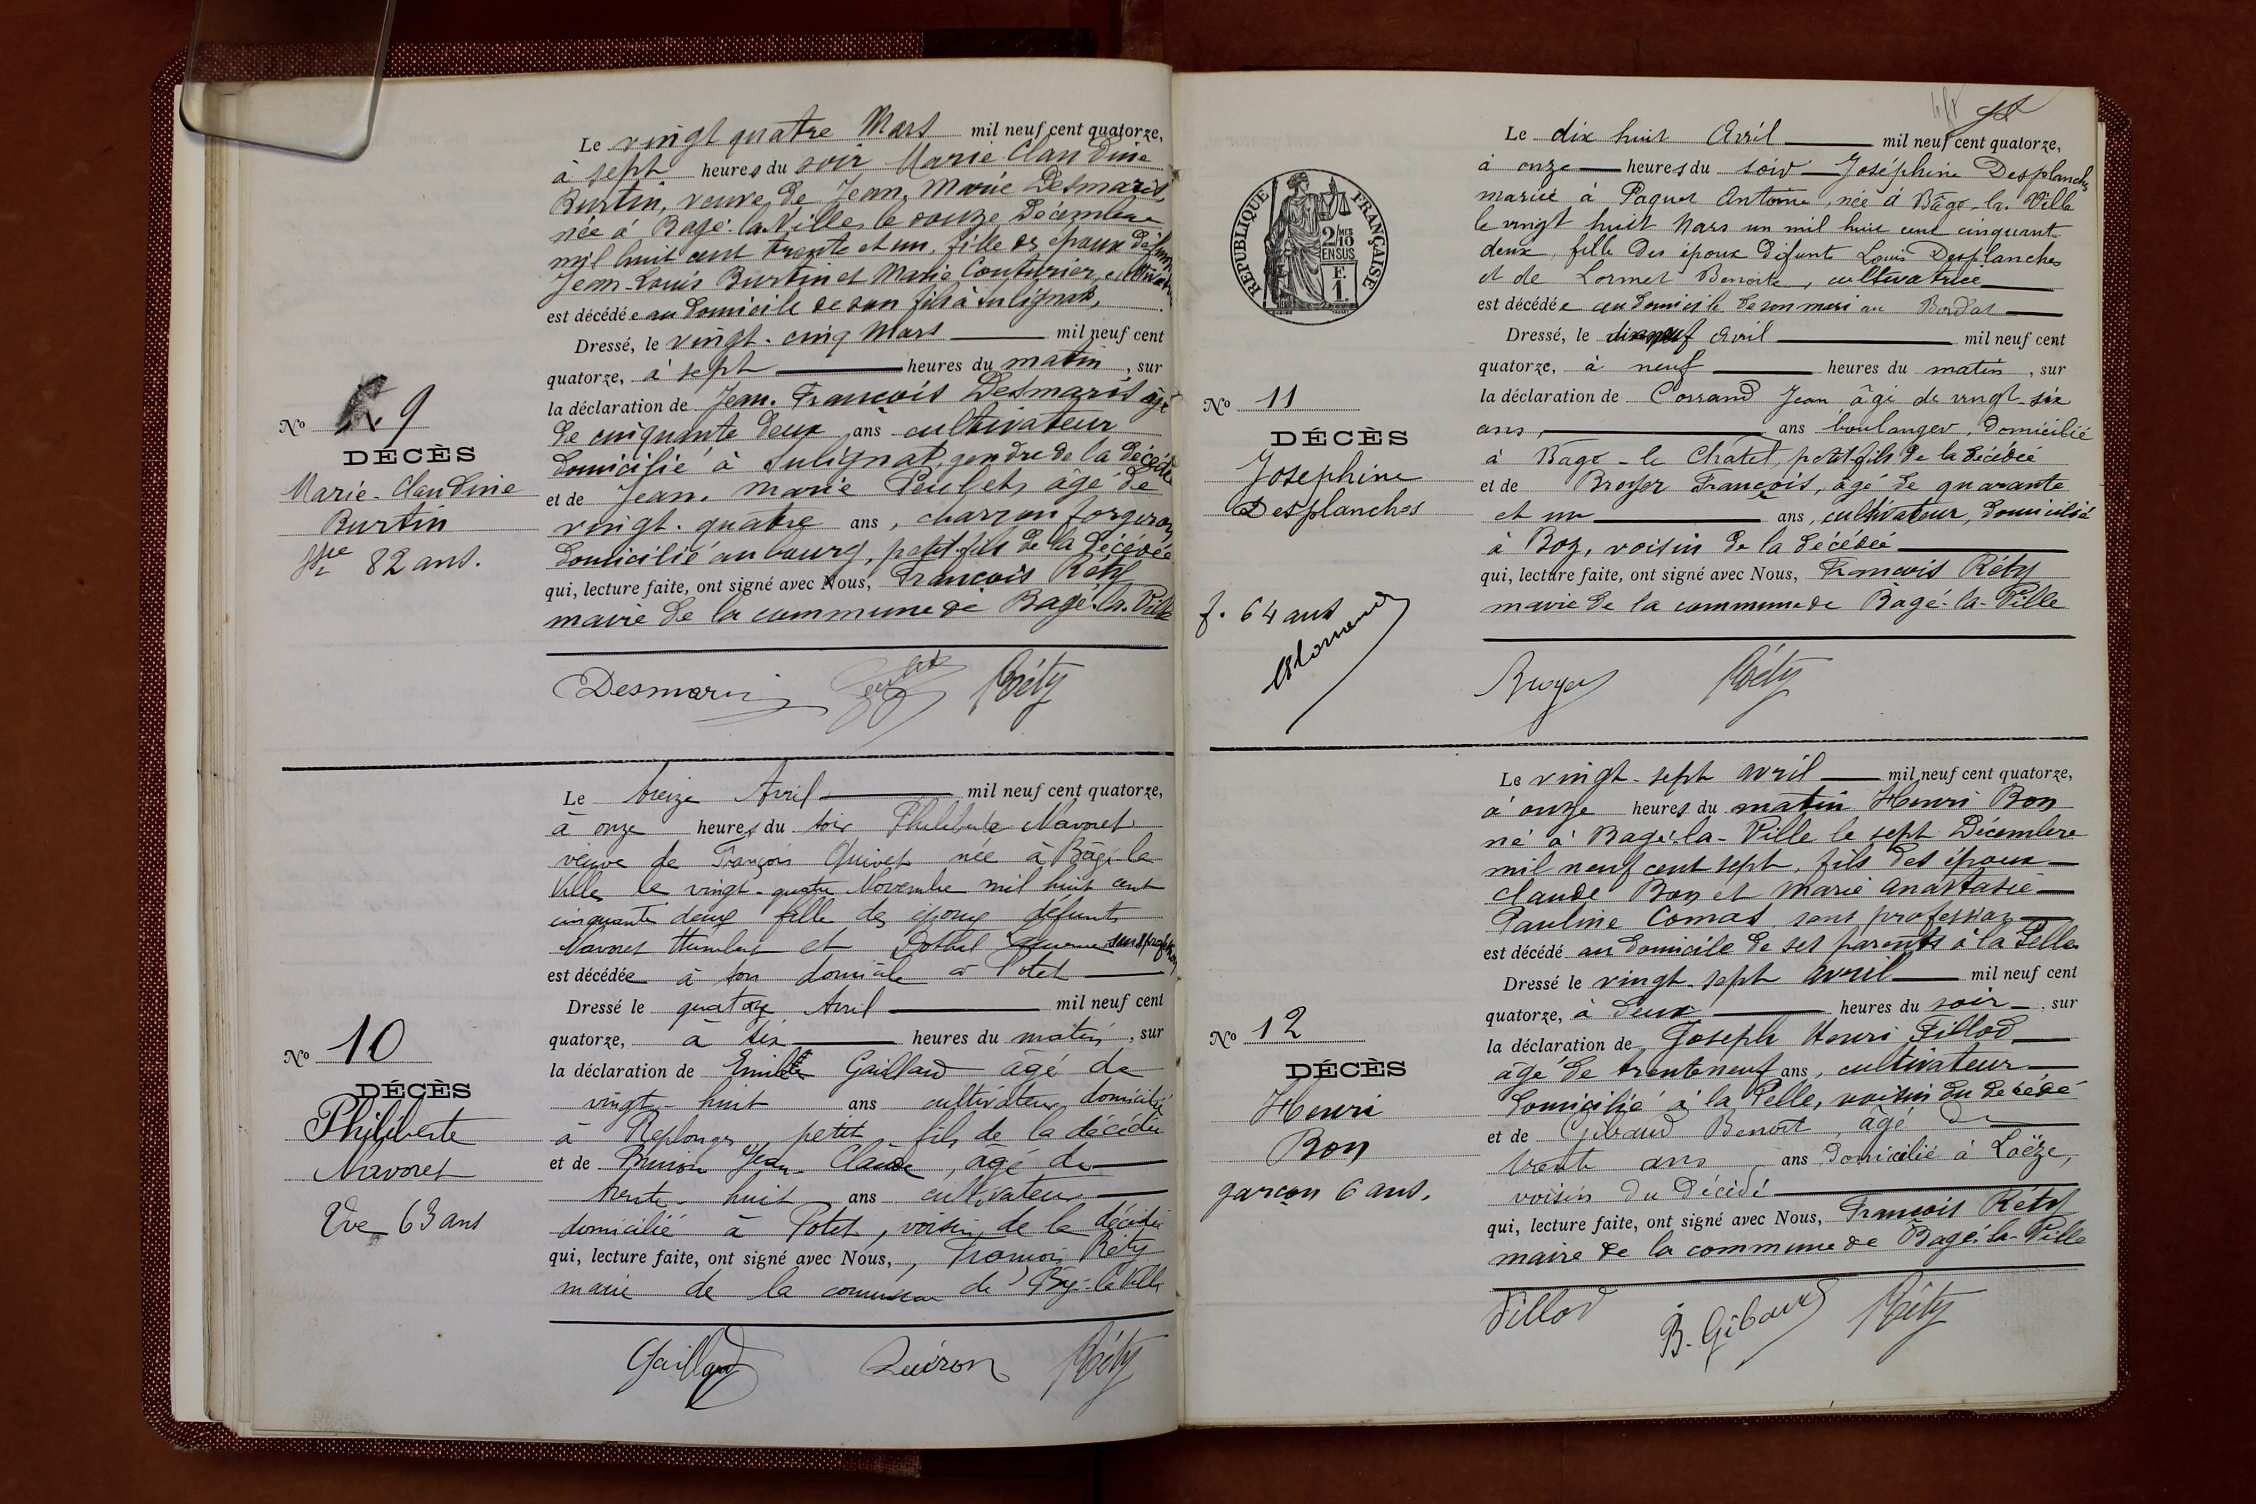 Le vingt quatre Mars mil neuf cent quatorze,
à sept heures du soir Marie Claudine
Burtin, veuve de Jean. Marie Desmaris,
née à Bagé-la-Ville le douze Décembre
mil huit cent trente et un, fille des époux défunts
Jean-Louis Burtin et Marie Couturier, cultivatrice
est décédée au domicile de son fils à Sulignat,
Dressé, le vingt-cinq Mars mil neuf cent
quatorze, à sept heures du matin, sur
la déclaration de Jean. François Desmaris âgé
de cinquante deux ans cultivateur
domicilié à Sulignat, gendre de la décédée
et de Jean. Marie Poulet, âgé de
vingt-quatre ans, charron forgeron
domicilié au bourg, petit-fils de la décédée
qui, lecture faite, ont signé avec Nous, François Réty
maire de la commune de Bagé-la-Ville
No 9
DÉCÈS
Marie-Claudine
Burtin
Vve 82 ans.
Desmaris Réty
Le treize Avril mil neuf cent quatorze,
à onze heures du soir Philiberte Navoret
veuve de François Quivet née à Bâgé-la
Ville le vingt-quatre Novembre mil huit cent
cinquante deux fille des époux défunts
Navoret Humbert et sans profession
est décédée à son domicile à Potet
Dressé le quatorze Avril mil neuf cent
quatorze, à six heures du matin, sur
la déclaration de Emile Gaillard âgé de
vingt-huit ans cultivateur domicilié
à Replonges petit-fils de la décédée
et de Jean-Claude, âgé de
trente-huit ans cultivateur
domicilié à Potet, voisin de la décédée
qui, lecture faite, ont signé avec Nous, François Réty
maire de la commune de Bâgé-la Ville
No 10
DÉCÈS
Philiberte
Navoret
Vve 63 ans
Gaillard Réty
Le dix huit Avril mil neuf cent quatorze,
à onze heures du soir Joséphine Desplanches
mariée à Paquet Antoine, née à Bâgé-la-Ville
le vingt huit Mars un mil huit cent cinquante
deux, fille des époux défunts Louis Desplanches
et de Lormet Benoite, cultivatrice
est décédée au domicile de son mari au
Dressé, le dix neuf Avril mil neuf cent
quatorze, à neuf heures du matin, sur
la déclaration de Corrand Jean âgé de vingt-six
ans, ans boulanger, domicilié
à Bagé-le Chatel, petit-fils de la décédée
et de Broyer François, âgé de quarante
et un ans, cultivateur, domicilié
à Boz, voisin de la décédée
qui, lecture faite, ont signé avec Nous, François Réty
maire de la commune de Bâgé-la-Ville
RÉPUBLIQUE FRANÇAISE
2/10
EN SUS
1 F.
No 11
DÉCÈS
Josephine
Desplanches
f. 64 ans
Broyer Réty
Le vingt-sept avril mil neuf cent quatorze,
à onze heures du matin Henri Bon
né à Bagé-la-Ville le sept Décembre
mil neuf cent sept, fils des époux
Claude Bon et Marie Anastasie
Pauline Comas, sans profession
est décédé au domicile de ses parents à la Pelle
Dressé le vingt-sept avril mil neuf cent
quatorze, à deux heures du soir, sur
la déclaration de Joseph Henri Fillod
âgé de trente neuf ans, cultivateur
domicilié à la Pelle, voisin du décédé
et de Gibaud Benoit, âgé de
trente ans ans domicilié à Loëze,
voisin du décédé
qui, lecture faite, ont signé avec Nous, François Réty
maire de la commune de Bagé-la-Ville
No 12
DÉCÈS
Henri
Bon
garçon 6 ans.
Fillod B. Gibaud Réty